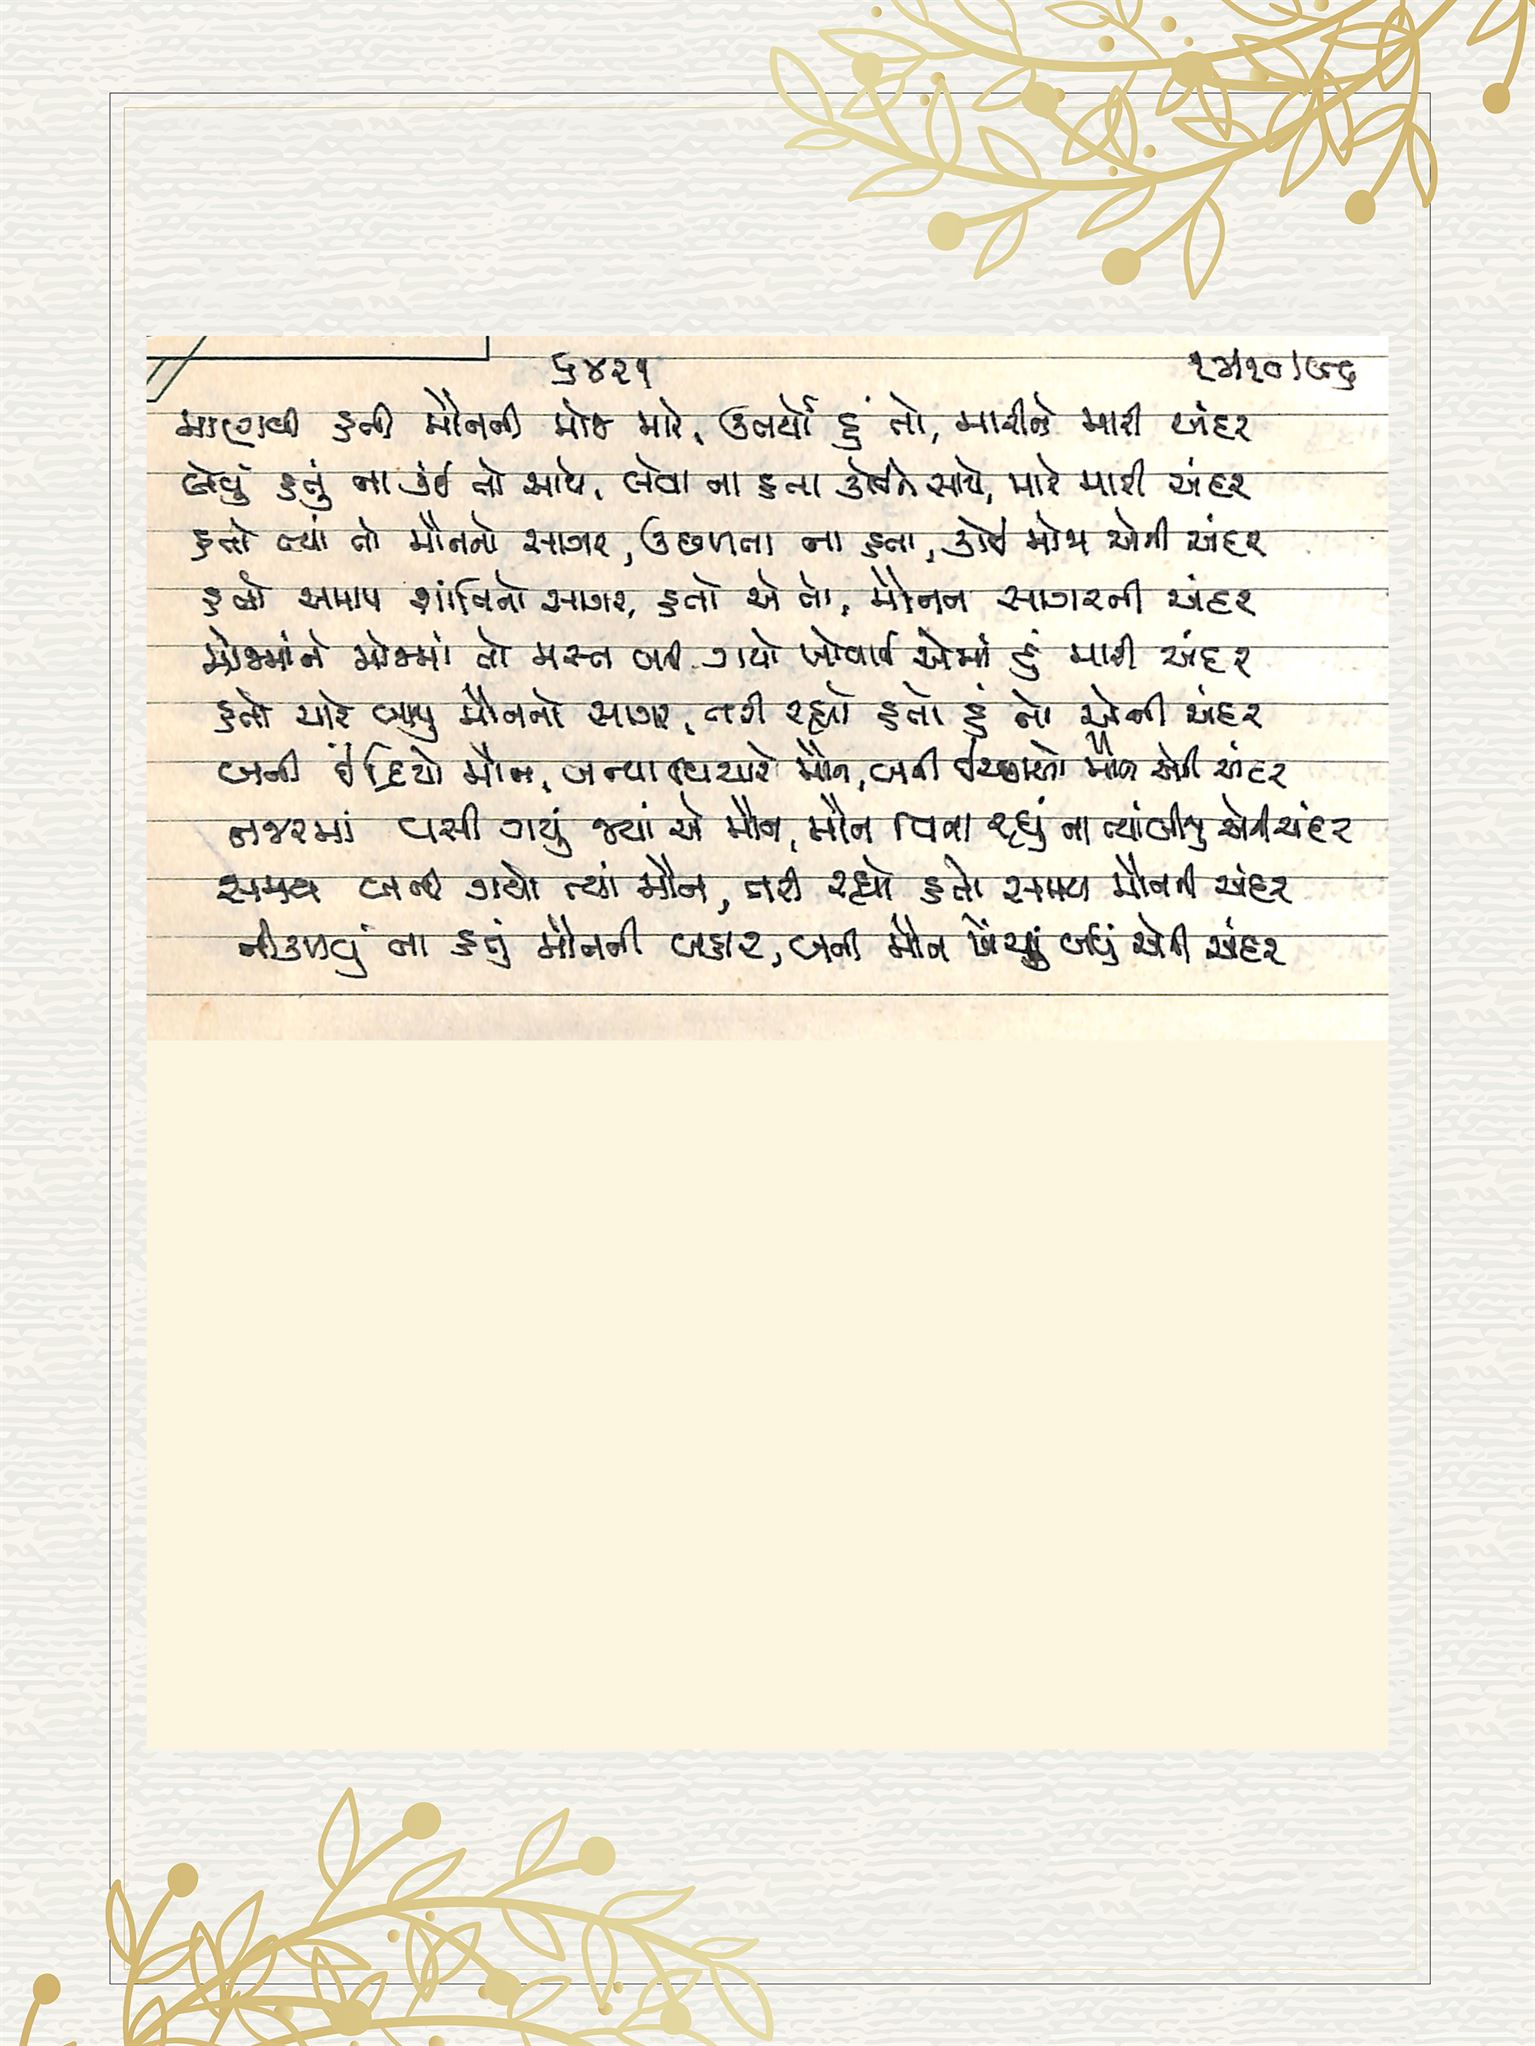 ૬૪૨૧
માણવી હતી મૌનની મોજ મારે, ઉતર્યો હું તો, મારીને મારી અંદર
લેવું હતું ના કંઈ તો સાથે, લેવા ના હતા કોઈને સાથે, મારે મારી અંદર
હતો ત્યાં તો મૌનનો સાગર, ઉછળતા ના હતા, કોઈ મોજા એની અંદર
હતો અમાપ શાંતિનો સાગર, હતો એ તો, મૌનન સાગરની અંદર
મોજમાંને મોજમાં તો મસ્ત બની ગયો ખોવાઈ એમાં હું મારી અંદર
હતો ચારે બાજુ મૌનનો સાગર, તરી રહ્યો હતો હું તો એની અંદર
બની ઈંદ્રિયો મૌન, બન્યા વિચારો મૌન, બની ઈચ્છાઓ મૌન એની અંદર
નજરમાં વસી ગયું જ્યાં એ મૌન, મૌન વિના રહ્યું ના ત્યાં બીજુ એની અંદર
સમય બની ગયો ત્યાં મૌન, તરી રહ્યો હતો સમય મૌનની અંદર
નીકળવું ના હતું મૌનની બહાર, બની મૌન ખેંચ્યું બધું એની અંદર